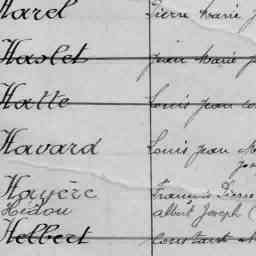 Harel Pierre Marie
Haslet Jean Marie
Hatte Louis Jean
Havard Louis Jean
Hayère François Pierre
Hédou Albert Joseph (
Helbert Constant